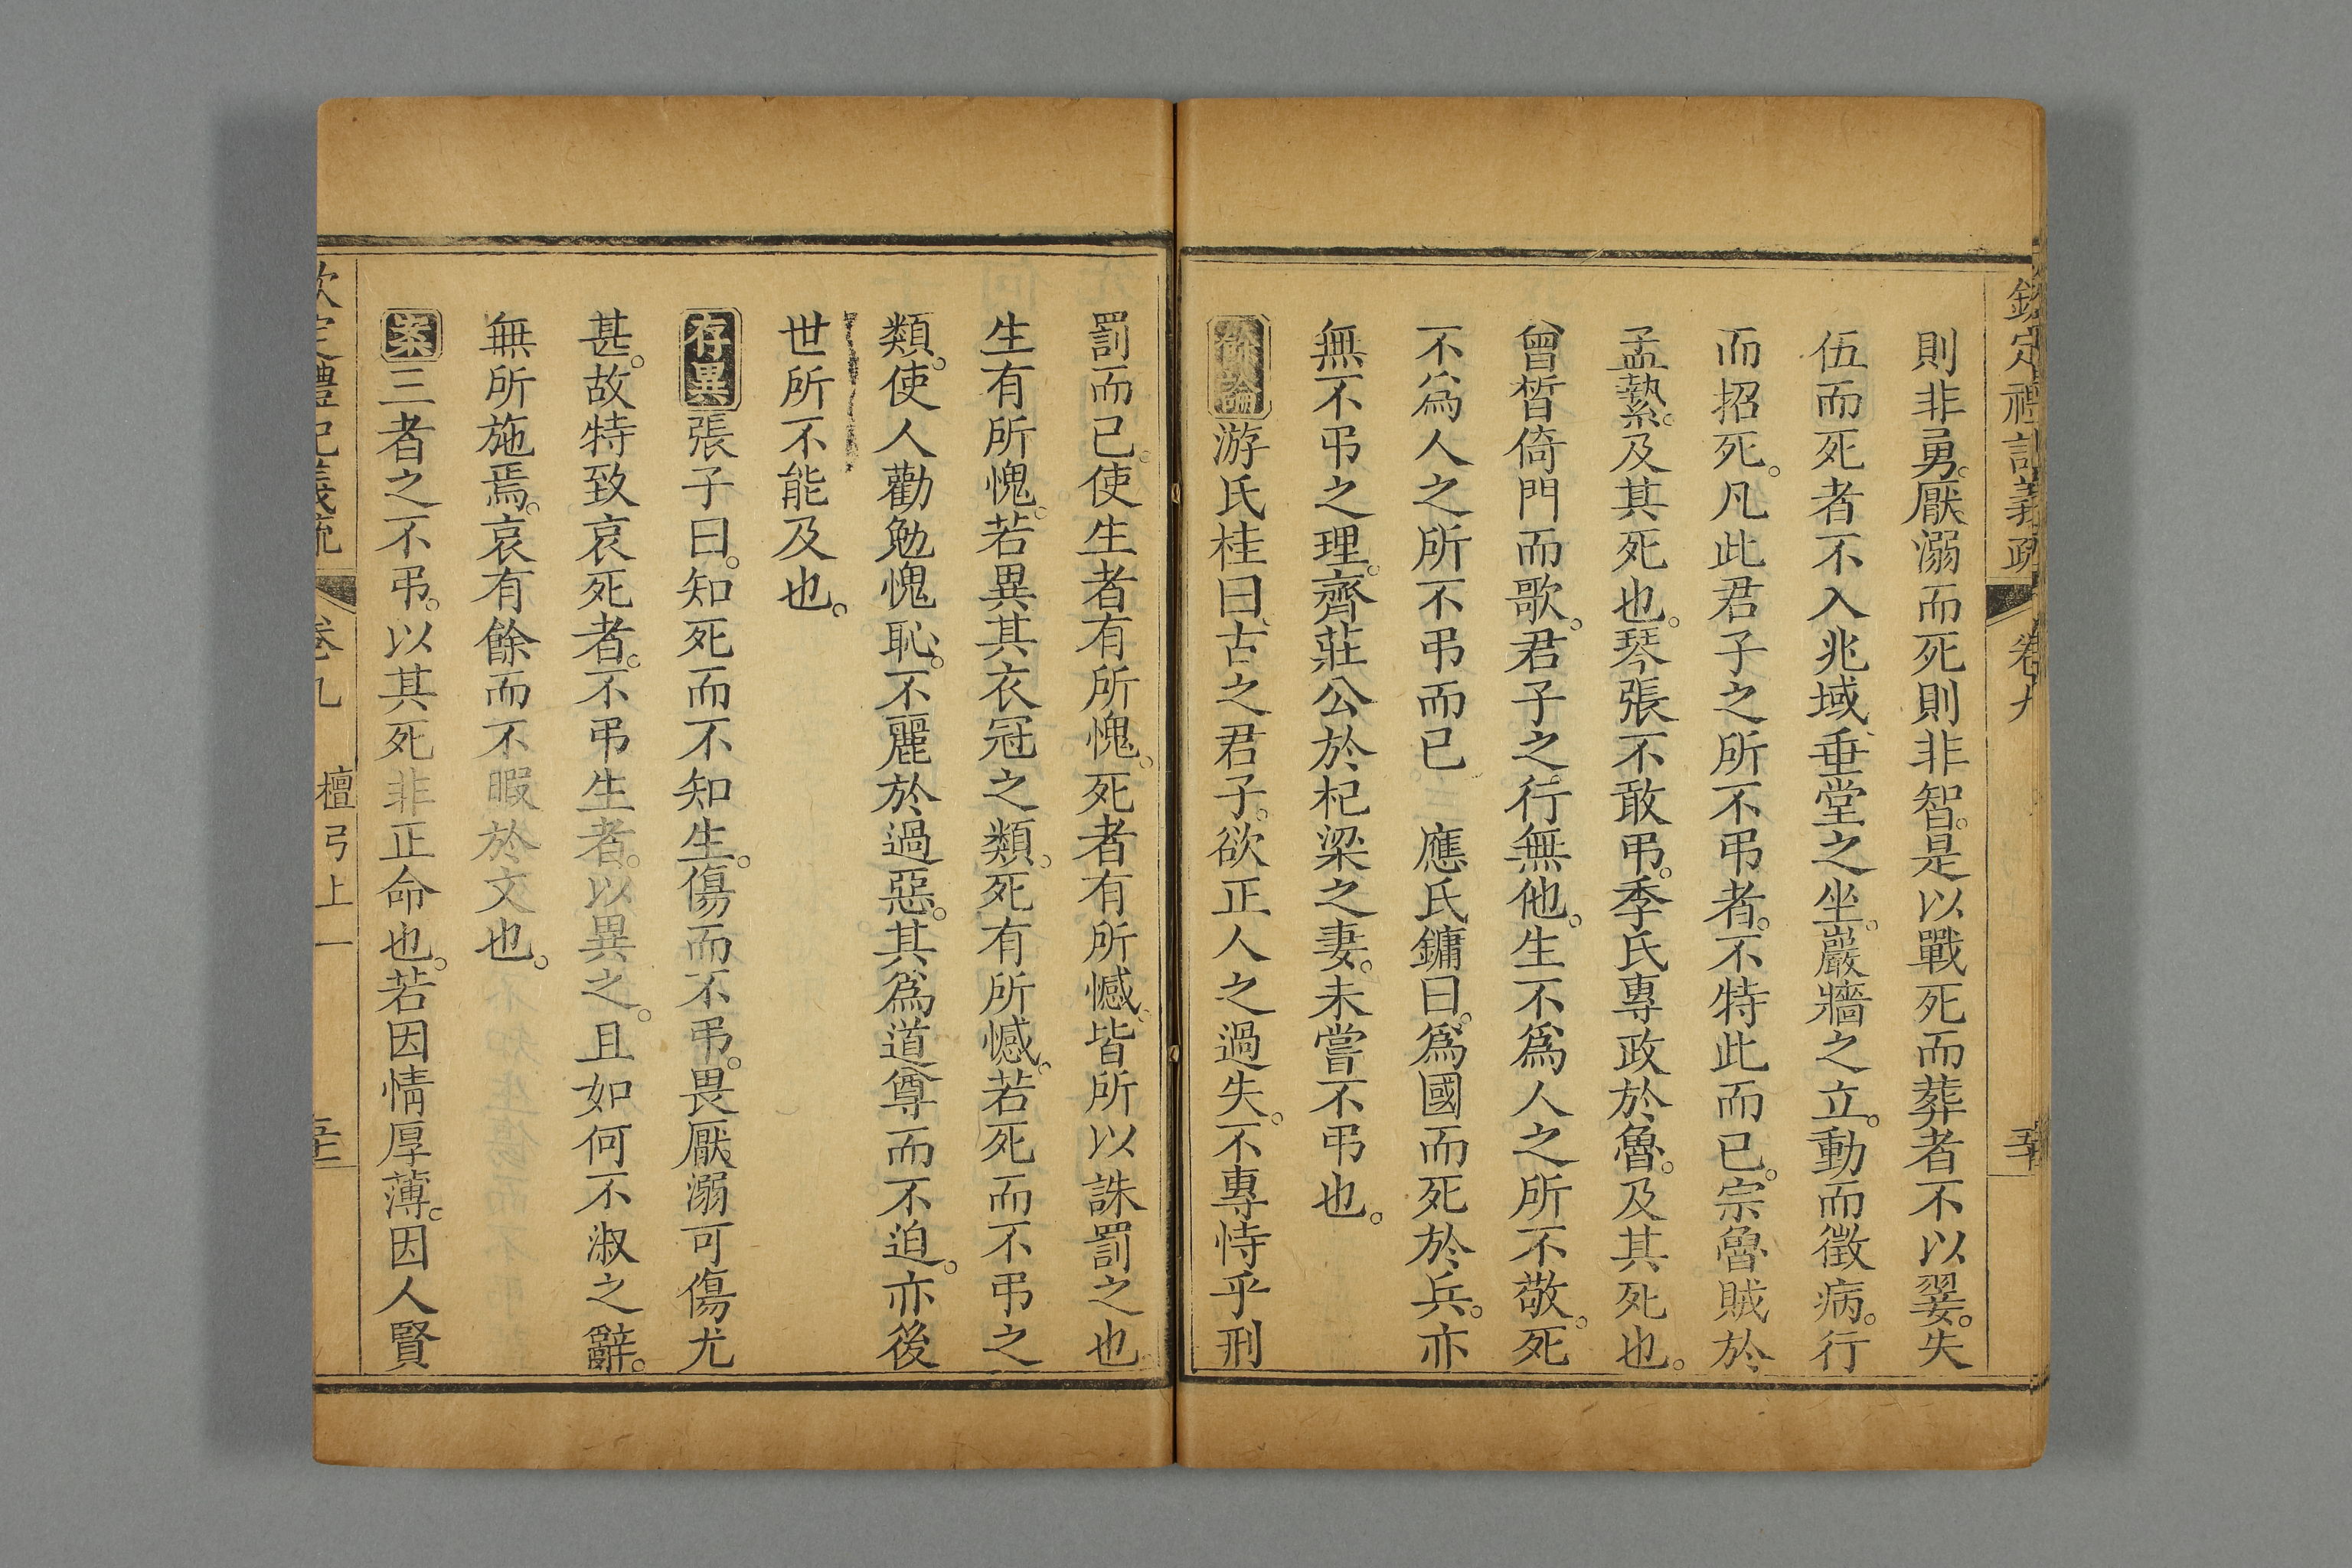 欽定禮記義疏 卷九
則非勇。厭溺而死則非智。是以戰死而葬者不以翣。失
伍而死者不入兆域、垂堂之坐。巖牆之立。動而徵病。行
而招死。凡此君子之所不弔者。不特此而已。宗魯賊於
孟縶。及其死也。琴張不敢弔。季氏專政於魯。及其死也。
曾晳倚門而歌。君子之行無他。生不爲人之所不敬。死
不爲人之所不弔而已 應氏鏞曰。爲國而死於兵。亦
無不弔之理。齊莊公於杞梁之妻。未嘗不弔也。
餘論游氏桂曰、古之君子。欲正人之過失。不專恃乎刑
罰而已。使生者有所愧。死者有所憾。皆所以誅罰之也。
生有所愧。若異其衣冠之類。死有所憾。若死而不弔之
類。使人勸勉愧恥。不麗於過惡。其爲道尊而不迫。亦後
世所不能及也。
存異張子曰。知死而不知生。傷而不弔。畏厭溺可傷尤
甚。故特致哀死者。不弔生者。以異之。且如何不淑之辭。
無所施焉。哀有餘而不暇於文也。
案三者之不弔。以其死非正命也。若因情厚薄。因人賢
欽定禮記義疏 卷九 檀弓上一